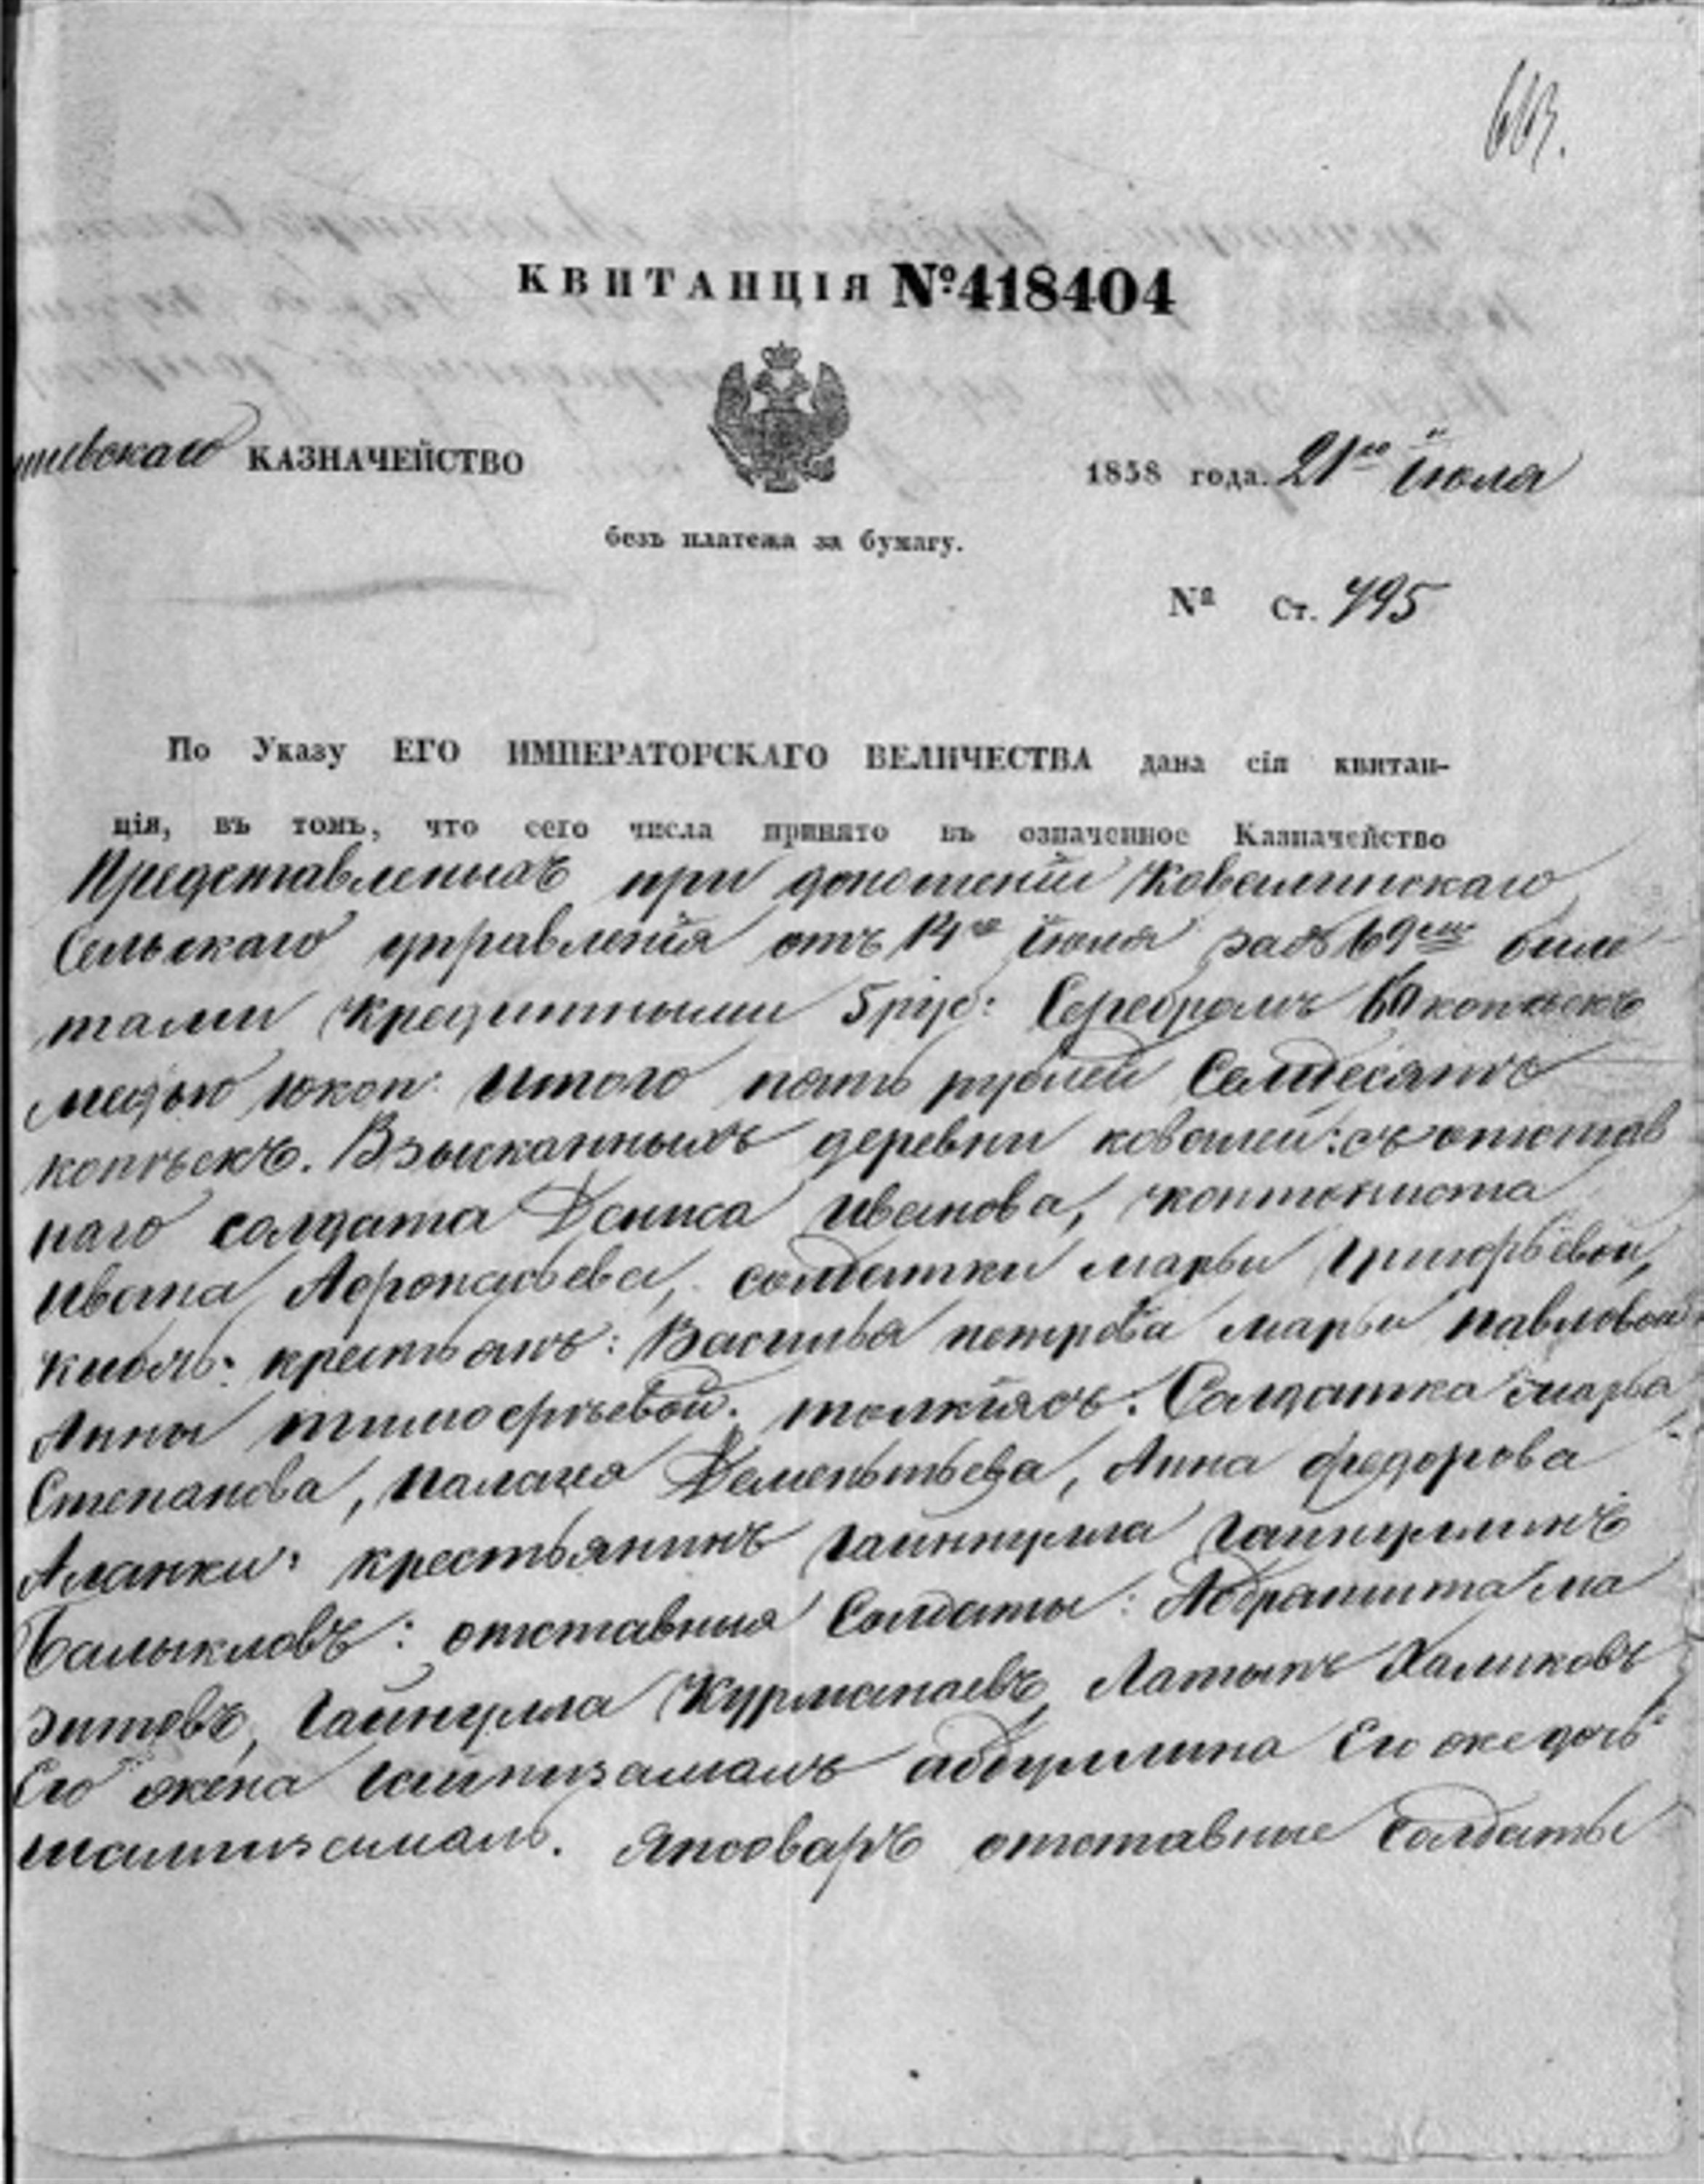 603.
КВИТАНЦІЯ №418404
шевскаго КАЗНАЧЕЙСТВО
1858 года. 21го Іюля
безъ платежа за бумагу.
№ Ст. 795
По Указу ЕГО ИМПЕРАТОРСКАГО ВЕЛИЧЕСТВА дана сія квитан-
ція, въ томъ, что сего числа принято въ означенное Казначейство
Представленныхъ при доношеніи Ковалинскаго
Сельскаго управленія отъ 14го Іюля за № 69 биле
тами Кредитными 5 руб: Серебромъ 60 копѣекъ
медью 10 коп. Итого пять рублей Семдесятъ
копѣекъ. Взысканныхъ деревни ковалей: съ отстав
наго солдата Дениса Иванова, кантониста
Ивана Афонасьева, солдатки марьи Григорьевой,
крестьянъ: Василья петрова марьи павловой
Анны тимофѣевой. толкіяхъ: Салдатка марья
Степанова, палагея Дементьева, Анна федорова
Аланки: крестьянинъ Гайнулла Гайнуллинъ
Балыкловъ: отставныя Солдаты: Абдрашита Ма
зитовъ, Гайнулла Курманаевъ, Латыпъ Халиковъ
Его жена абдуллина Его же дочь
Япповаръ отставные Солдаты